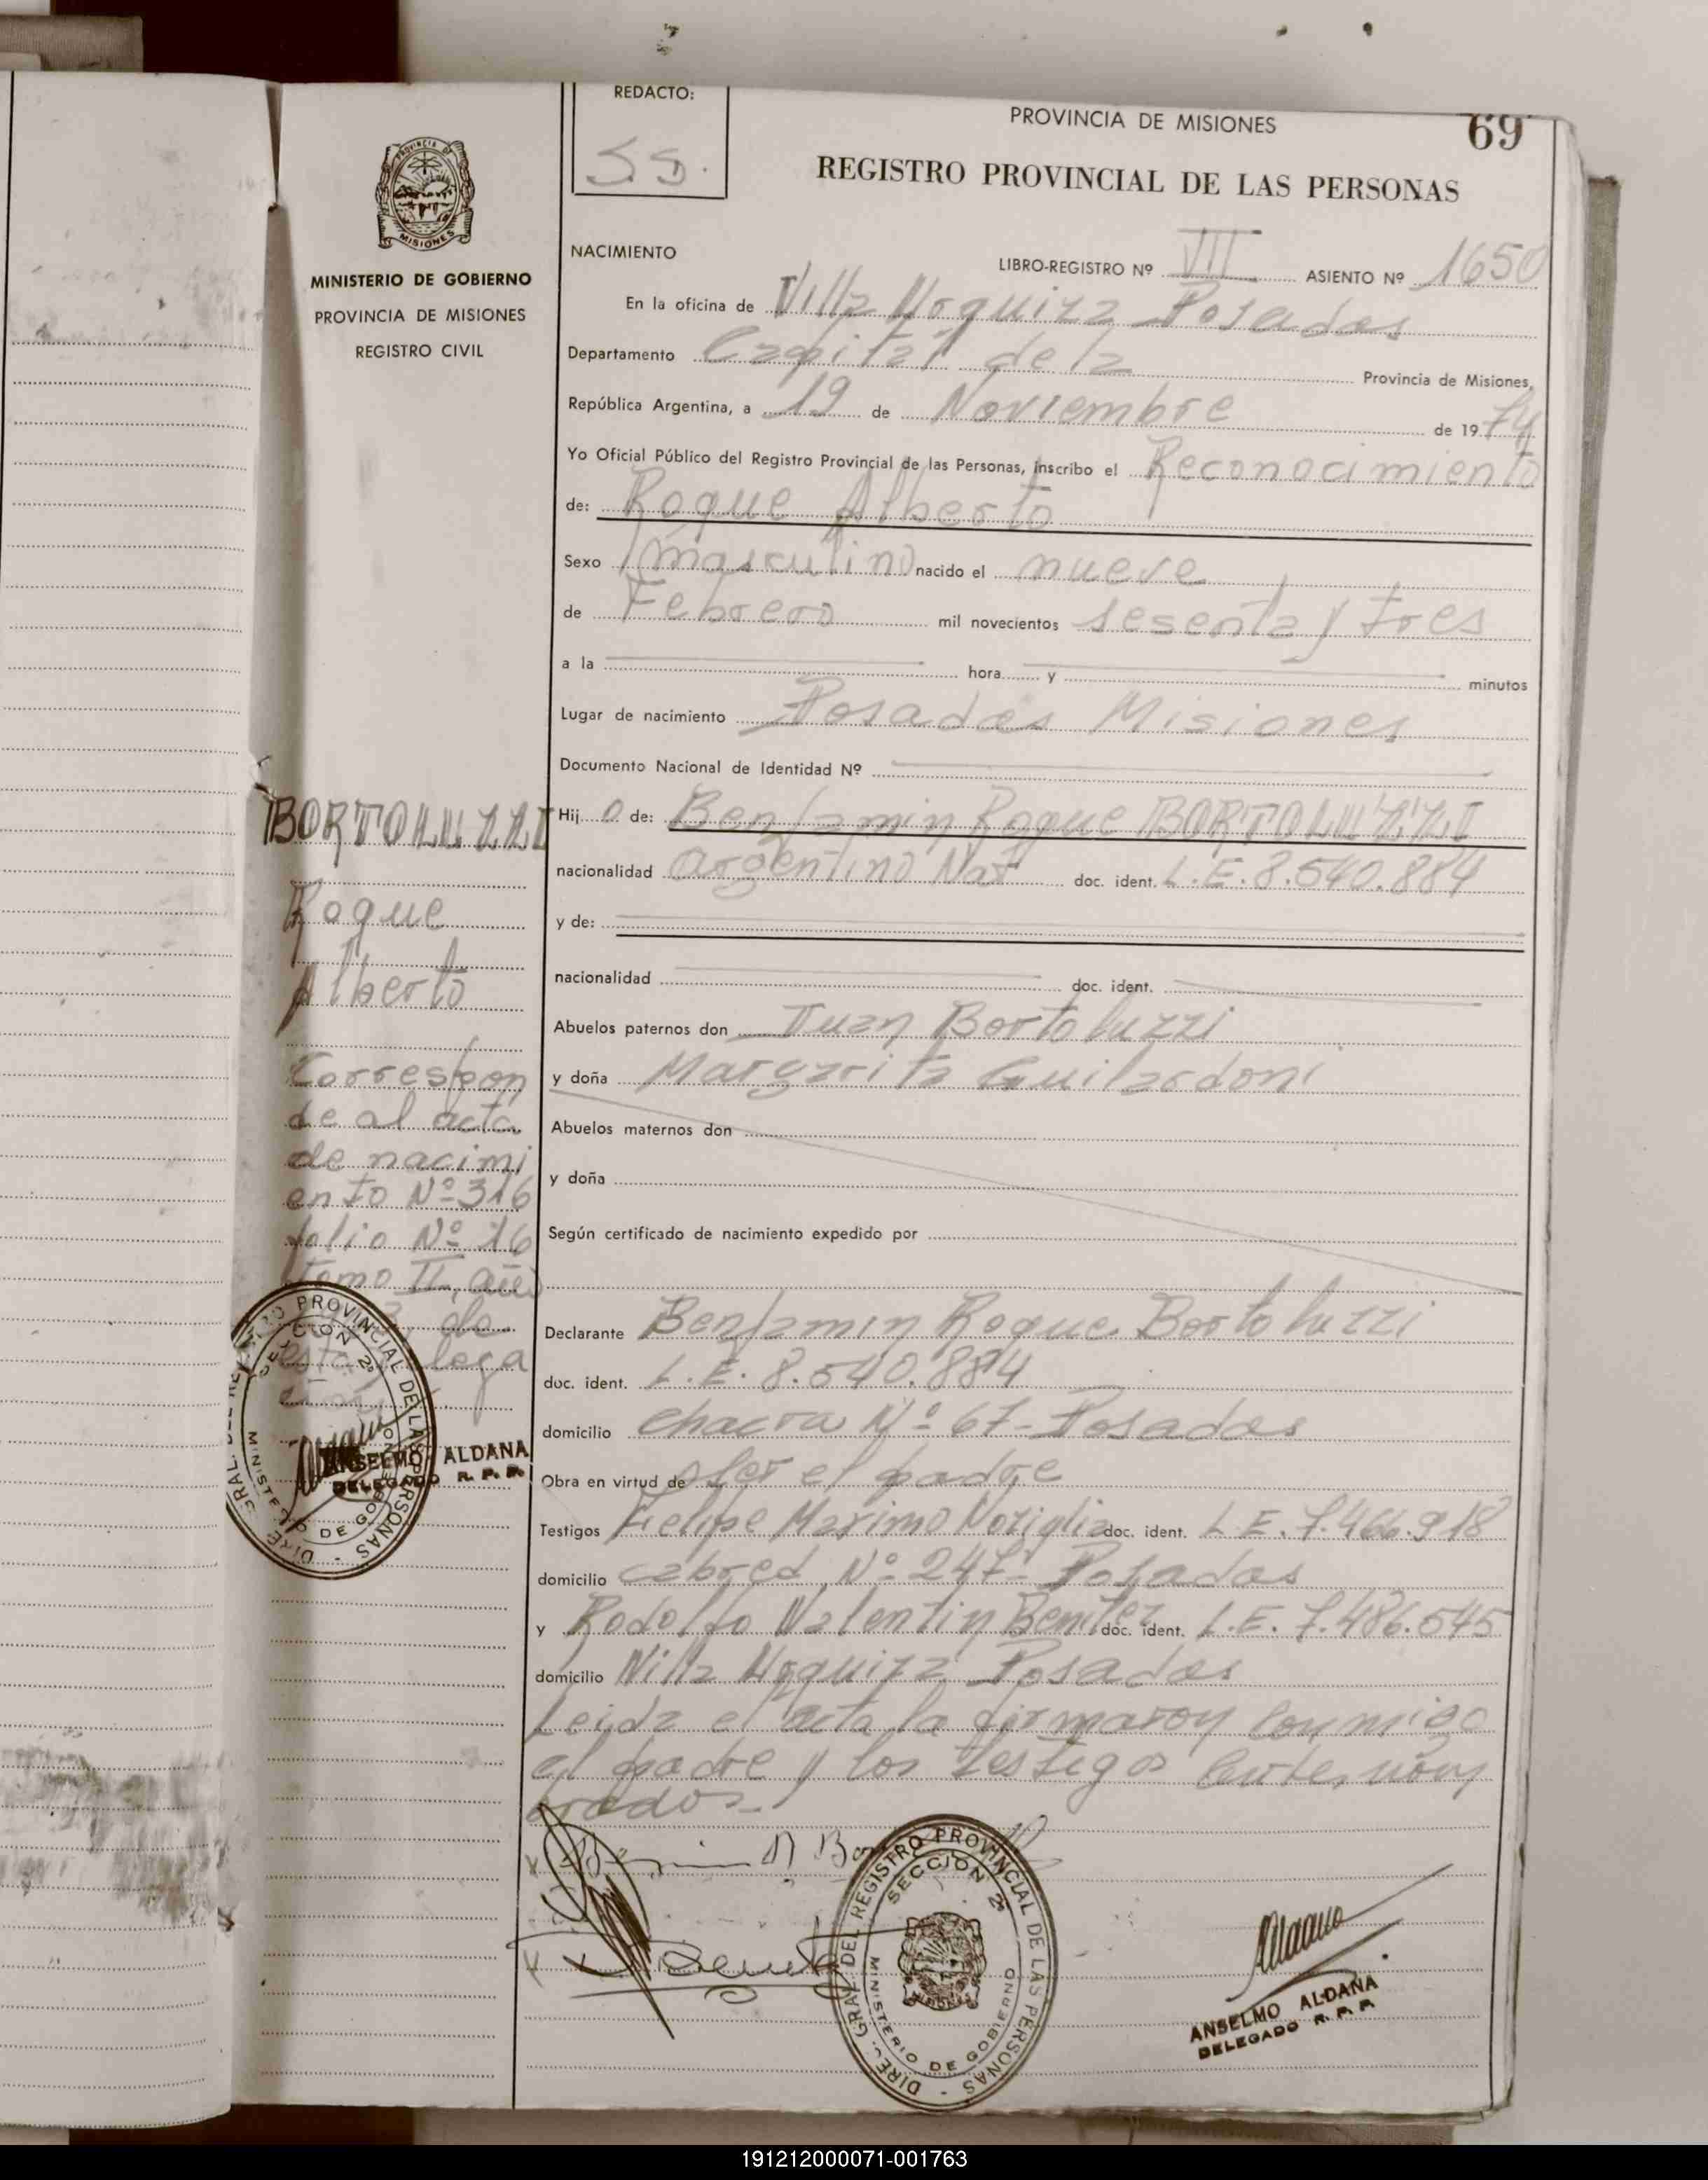 REDACTO:
S.S.
PROVINCIA DE MISIONES
69
REGISTRO PROVINCIAL DE LAS PERSONAS
PROVINCIA DE
MISIONES
MINISTERIO DE GOBIERNO
PROVINCIA DE MISIONES
REGISTRO CIVIL
NACIMIENTO
LIBRO-REGISTRO Nº VII ASIENTO Nº 1650
En la oficina de Villa Urquiza Posadas
Departamento Capital de la Provincia de Misiones,
República Argentina, a 19 de Noviembre de 1974
Yo Oficial Público del Registro Provincial de las Personas, inscribo el Reconocimiento
de: Roque Alberto
Sexo masculino nacido el nueve
de Febrero mil novecientos sesenta y tres
a la hora y minutos
Lugar de nacimiento Posadas Misiones
Documento Nacional de Identidad Nº
Hijo de: Benjamin Roque BORTOLUZZI
nacionalidad Argentino Nat doc. ident. L.E. 8.540.884
y de:
nacionalidad doc. ident.
Abuelos paternos don Juan Bortoluzzi
y doña Margarita Guilardoni
Abuelos maternos don
y doña
Según certificado de nacimiento expedido por
Declarante Benjamin Roque Bortoluzzi
doc. ident. L.E. 8.540.884
domicilio chacra Nº 67 - Posadas
Obra en virtud de ser el padre
Testigos Felipe Maximo Noriglia doc. ident. L.E. 7.466.918
domicilio cabred Nº 247 - Posadas
y Rodolfo Valentin Benitez doc. ident. L.E. 7.486.545
domicilio Villa Urquiza Posadas
Leida el acta la firmaron conmigo
el padre y los testigos antenom
brados.-
BORTOLUZZI
Roque
Alberto
Correspon
de al acta
de nacimi
ento Nº 316
folio Nº 16
tomo II, año
de
esta
ANSELMO ALDANA
DELEGADO R. P. P.
DIREC. GRAL. DEL REGISTRO PROVINCIAL DE LAS PERSONAS
SECCION 2ª
MINISTERIO DE GOBIERNO
DIREC. GRAL. DEL REGISTRO PROVINCIAL DE LAS PERSONAS
SECCION 2ª
MINISTERIO DE GOBIERNO
ANSELMO ALDANA
DELEGADO R. P. P.
191212000071-001763